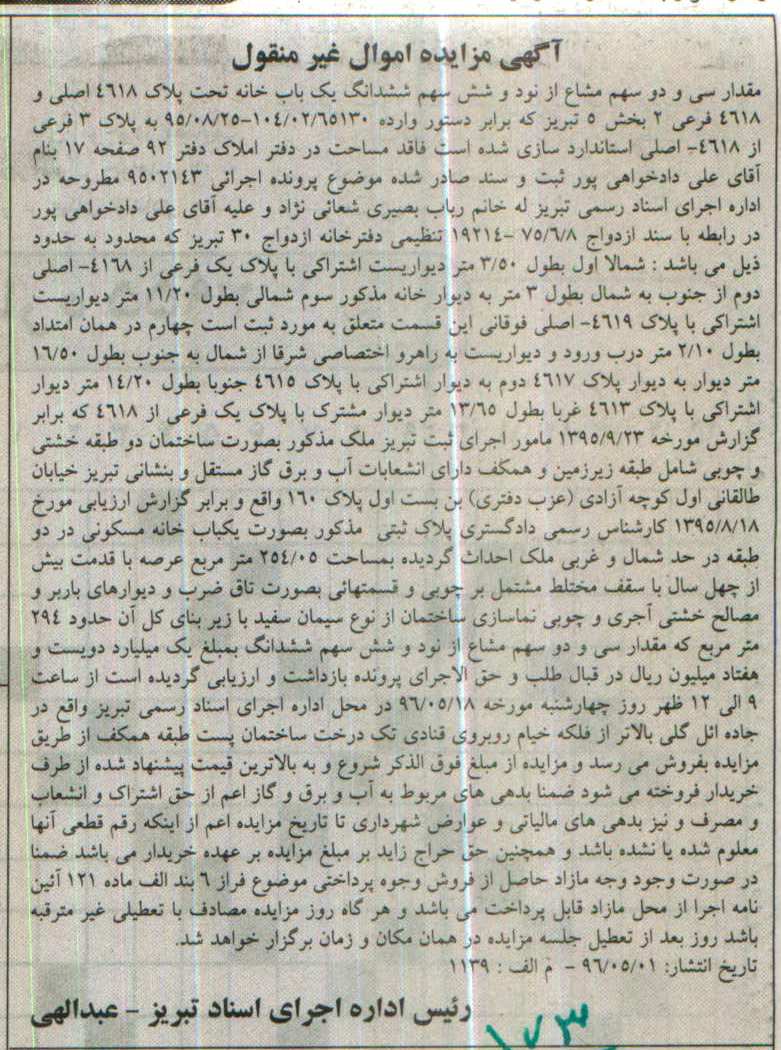 آگهی مزایده اموال غیر منقول
مقدار سی و دو سهم مشاع از نود و شش سهم ششدانگ یک باب خانه تحت پلاک ٤٦١٨ اصلی و
٤٦١٨ فرعی ٢ بخش ٥ تبریز که برابر دستور وارده ١٠٤/٠٢/٦٥١٣٠-٩٥/٠٨/٢٥ به پلاک ٣ فرعی
از ٤٦١٨- اصلی استاندارد سازی شده است فاقد مساحت در دفتر املاک دفتر ٩٢ صفحه ١٧ بنام
آقای علی دادخواهی پور ثبت و سند صادر شده موضوع پرونده اجرائی ٩٥٠٢١٤٣ مطروحه در
اداره اجرای اسناد رسمی تبریز له خانم رباب بصیری شعائی نژاد و علیه آقای علی دادخواهی پور
در رابطه با سند ازدواج ٧٥/٦/٨ -١٩٢١٤ تنظیمی دفترخانه ازدواج ٣٠ تبریز که محدود به حدود
ذیل می باشد : شمالا اول بطول ٣/٥٠ متر دیواریست اشتراکی با پلاک یک فرعی از ٤١٦٨- اصلی
دوم از جنوب به شمال بطول ٣ متر به دیوار خانه مذکور سوم شمالی بطول ١١/٢٠ متر دیواریست
اشتراکی با پلاک ٤٦١٩- اصلی فوقانی این قسمت متعلق به مورد ثبت است چهارم در همان امتداد
بطول ٢/١٠ متر درب ورود و دیواریست به راهرو اختصاصی شرقا از شمال به جنوب بطول ١٦/٥٠
متر دیوار به دیوار پلاک ٤٦١٧ دوم به دیوار اشتراکی با پلاک ٤٦١٥ جنوبا بطول ١٤/٢٠ متر دیوار
اشتراکی با پلاک ٤٦١٣ غربا بطول ١٣/٦٥ متر دیوار مشترک با پلاک یک فرعی از ٤٦١٨ که برابر
گزارش مورخه ١٣٩٥/٩/٢٣ مامور اجرای ثبت تبریز ملک مذکور بصورت ساختمان دو طبقه خشتی
و چوبی شامل طبقه زیرزمین و همکف دارای انشعابات آب و برق گاز مستقل و بنشانی تبریز خیابان
طالقانی اول کوچه آزادی (عزب دفتری) بن بست اول پلاک ١٦٠ واقع و برابر گزارش ارزیابی مورخ
١٣٩٥/٨/١٨ کارشناس رسمی دادگستری پلاک ثبتی مذکور بصورت یکباب خانه مسکونی در دو
طبقه در حد شمال و غربی ملک احداث گردیده بمساحت ٢٥٤/٠٥ متر مربع عرصه با قدمت بیش
از چهل سال با سقف مختلط مشتمل بر چوبی و قسمتهائی بصورت تاق ضرب و دیوارهای باربر و
مصالح خشتی آجری و چوبی نماسازی ساختمان از نوع سیمان سفید با زیر بنای کل آن حدود ٢٩٤
متر مربع که مقدار سی و دو سهم مشاع از نود و شش سهم ششدانگ بمبلغ یک میلیارد دویست و
هفتاد میلیون ریال در قبال طلب و حق الاجرای پرونده بازداشت و ارزیابی گردیده است از ساعت
٩ الی ١٢ ظهر روز چهارشنبه مورخه ٩٦/٠٥/١٨ در محل اداره اجرای اسناد رسمی تبریز واقع در
جاده ائل گلی بالاتر از فلکه خیام روبروی قنادی تک درخت ساختمان پست طبقه همکف از طریق
مزایده بفروش می رسد و مزایده از مبلغ فوق الذکر شروع و به بالاترین قیمت پیشنهاد شده از طرف
خریدار فروخته می شود ضمنا بدهی های مربوط به آب و برق و گاز اعم از حق اشتراک و انشعاب
و مصرف و نیز بدهی های مالیاتی و عوارض شهرداری تا تاریخ مزایده اعم از اینکه رقم قطعی آنها
معلوم شده یا نشده باشد و همچنین حق حراج زاید بر مبلغ مزایده بر عهده خریدار می باشد ضمنا
در صورت وجود وجه مازاد حاصل از فروش وجوه پرداختی موضوع فراز ٦ بند الف ماده ١٢١ آئین
نامه اجرا از محل مازاد قابل پرداخت می باشد و هر گاه روز مزایده مصادف با تعطیلی غیر مترقبه
باشد روز بعد از تعطیل جلسه مزایده در همان مکان و زمان برگزار خواهد شد.
تاریخ انتشار: ٩٦/٠٥/٠١ - م الف : ١١٣٩
رئیس اداره اجرای اسناد تبریز - عبدالهی
١٧٣